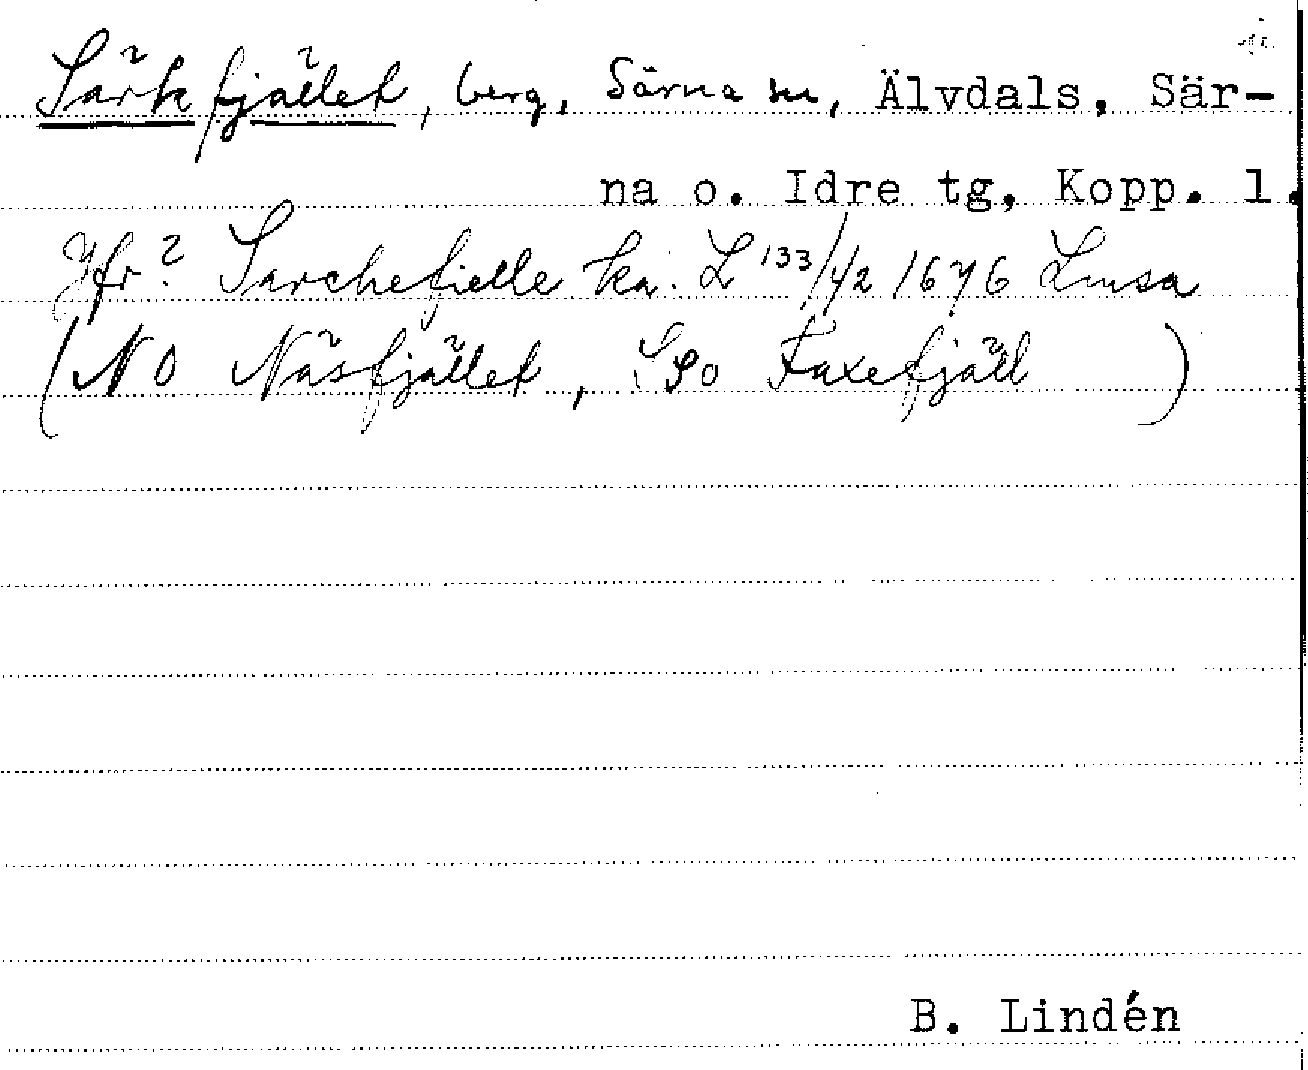 Särkfjället, berg, Särna sn, Älvdals, Sär-
na o. Idre tg, Kopp. l.
Jfr? Sarchefielle ka. L 133/42 1676 Lmsa
(NO Näsfjället, SSO Faxefjäll )
B. Lindén